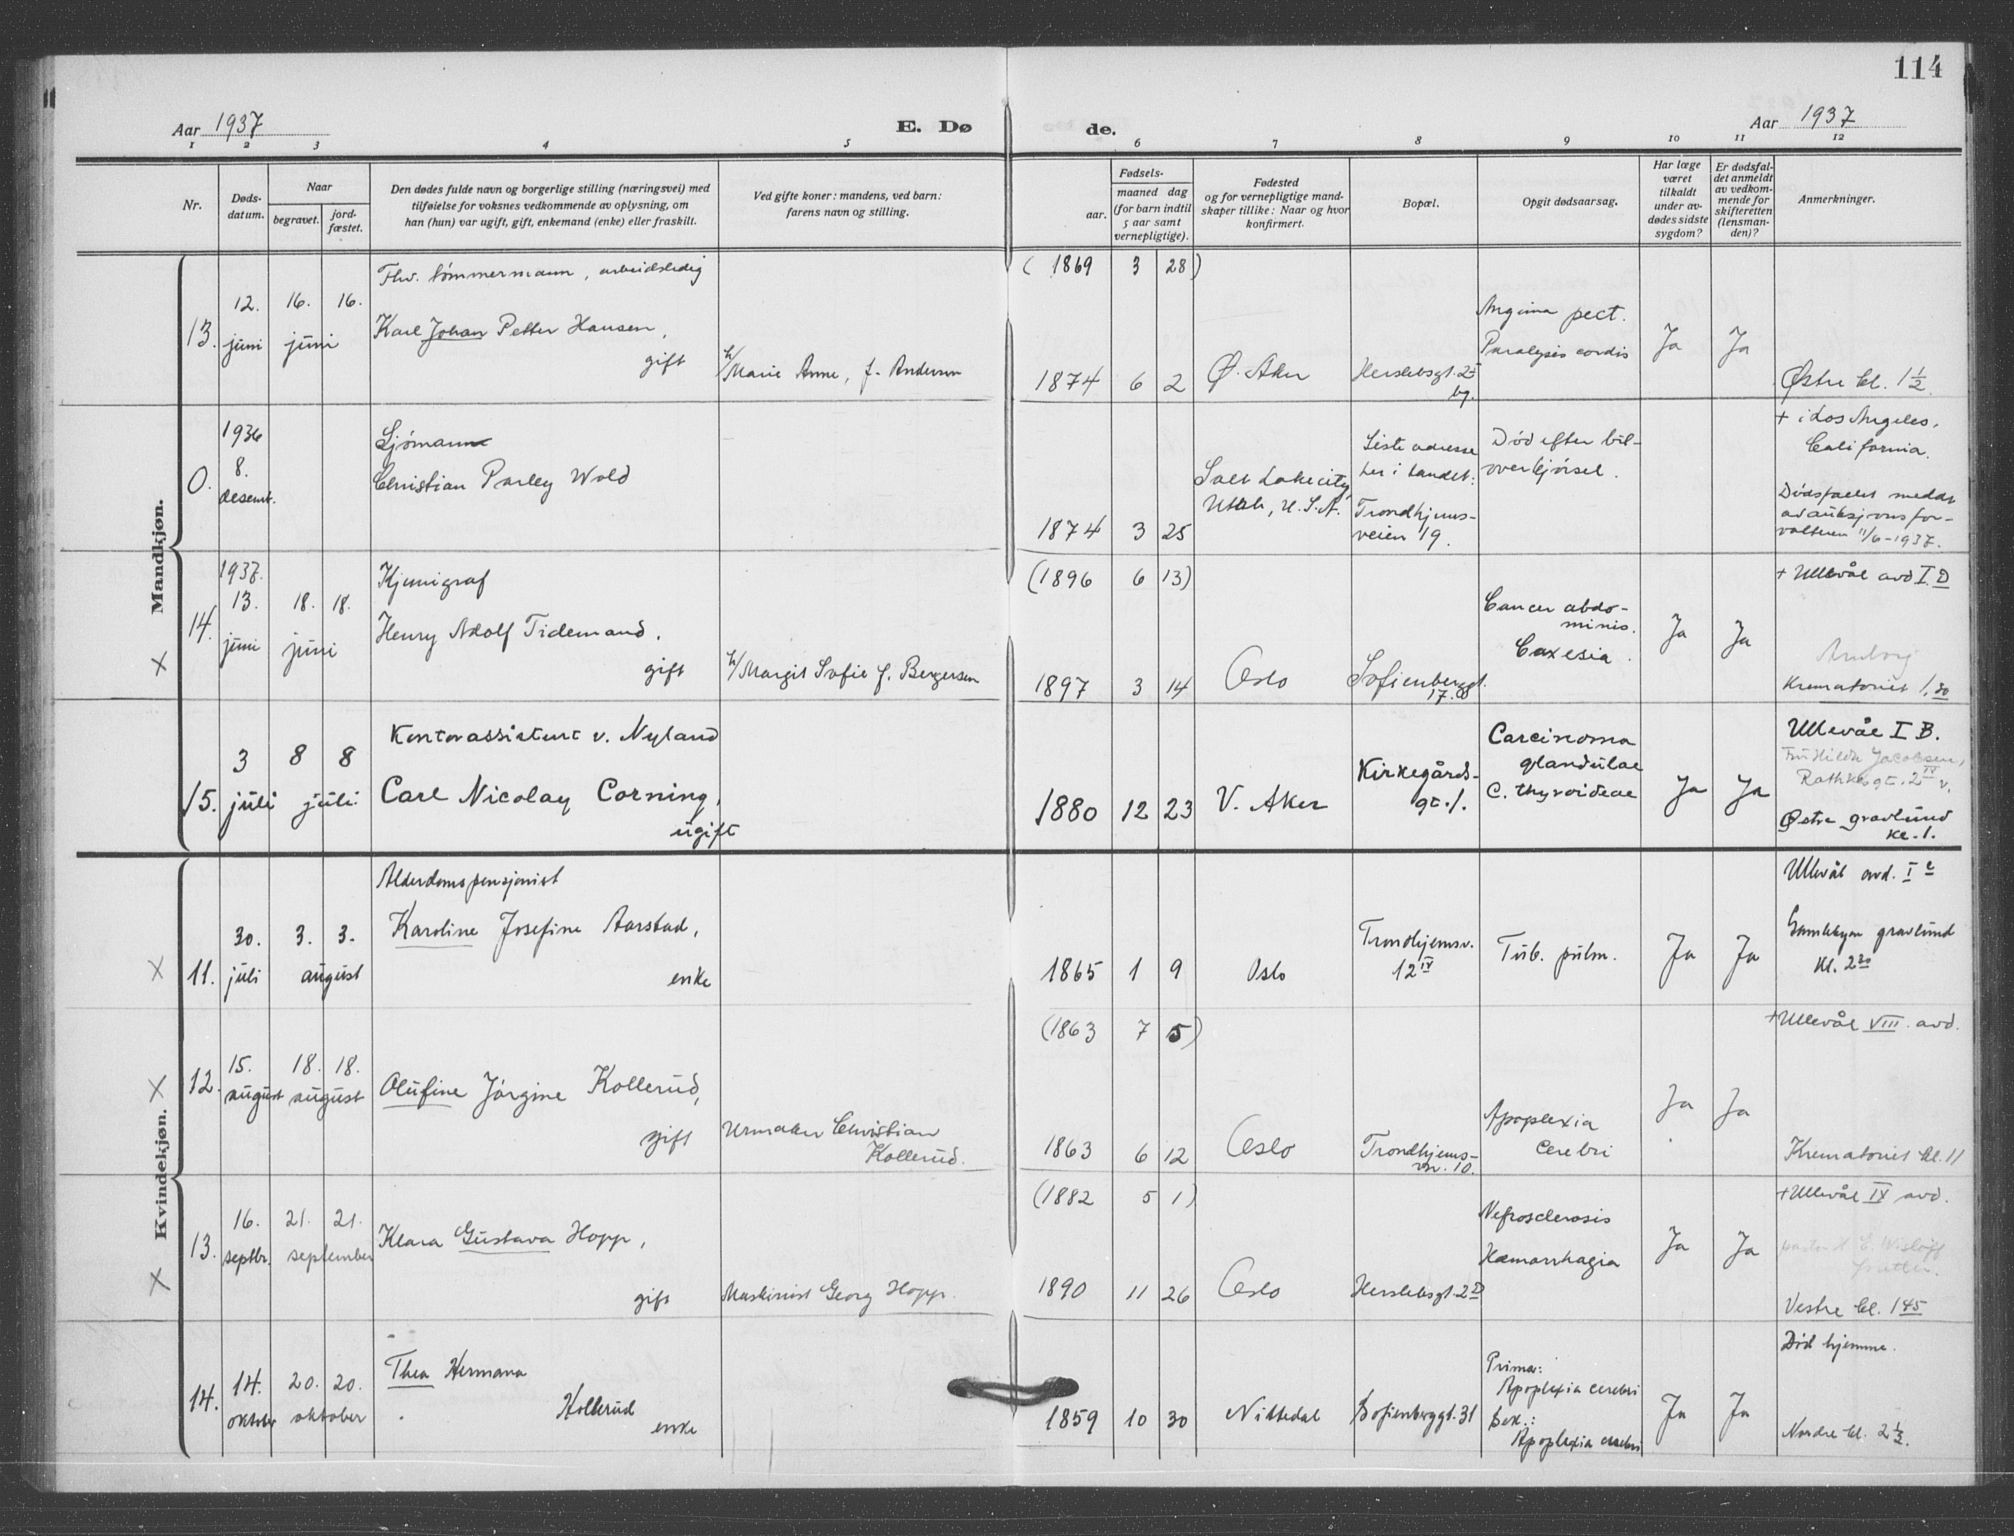 114
Aar 1937
E. Dø
de.
Aar 1937
1 2 3 4 5 6 7 8 9 10 11 12
Nr.
Døds-
datum.
Naar
begravet.
jord-
fæstet.
Den dødes fulde navn og borgerlige stilling (næringsvei) med
tilføielse for voksnes vedkommende av oplysning, om
han (hun) var ugift, gift, enkemand (enke) eller fraskilt.
Ved gifte koner: mandens, ved barn:
farens navn og stilling.
Fødsels-
aar.
maaned dag
(for barn indtil
5 aar samt
vernepligtige).
Fødested
og for vernepligtige mand-
skaper tillike: Naar og hvor
konfirmert.
Bopæl.
Opgit dødsaarsag.
Har læge
været
tilkaldt
under av-
dødes sidste
sygdom?
Er dødsfal-
det anmeldt
av vedkom-
mende for
skifteretten
(lensman-
den)?
Anmerkninger.
Mandkjøn.
13.
12.
juni
16. 16.
juni
Fhv. tømmermann, arbeidsledig
Karl Johan Petter Hansen,
gift
m/Marie Anne, f. Andersen
(1869 3 28)
1874 6 2
Ø. Aker
Herslebsgt. 25
bg.
Angina pect.
Paralysis cordis
Ja
Ja
Østre kl. 1 1/2
0.
1936
8.
desembr.
Sjømann
Christian Parley Wold
1874 3 25
Salt Lake city,
Utah, U.S.A.
Siste adresse
her i landet:
Trondhjems-
veien 19.
Død efter bil-
overkjørsel.
+ i Los Angeles,
California.
Dødsfallet meddelt
av auksjonsfor-
valteren 11/6-1937.
14.
X
1937.
13.
juni
18. 18.
juni
Kjemigraf
Henry Adolf Tidemand,
gift
m/Margit Sofie f. Bergersen
(1896 6 13)
1897 3 14
Oslo
Sofienberggt.
17.
Cancer abdo-
minis.
Caxesia.
Ja
Ja
+ Ullevål avd I. D
Krematoriet 1.30
15.
3
juli
8 8
juli
Kontorassistent v. Nyland
Carl Nicolay Corning,
ugift
1880 12 23
V. Aker
Kirkegårds-
gt. 1.
Carcinoma
glandulae
C. thyroideae
Ja
Ja
Ullevål I B.
Fru Hilda Jacobsen,
Rathkesgt. 2 IV v.
Østre gravlund
kl. 1.
Kvindekjøn.
X
11.
30.
juli
3. 3.
august
Alderdomspensjonist
Karoline Josefine Aarstad,
enke
1865 1 9
Oslo
Trondhjemsv.
12 IV
Tub. pulm.
Ja
Ja
Ullevål avd. I c
Gamlebyen gravlund
kl. 2 30
X
12.
15.
august
18. 18.
august
Olufine Jørgine Kollerud,
gift
Urmaker Christian
Kollerud.
(1863 7 5)
1863 6 12
Oslo
Trondhjems-
vn. 10.
Apoplexia
cerebri
Ja
Ja
+ Ullevål VIII. avd.
Krematoriet kl. 11
X
13.
16.
septbr.
21. 21.
september
Klara Gustava Hopp,
gift
Maskinist Georg Hopp.
(1882 5 1)
1890 11 26
Oslo
Herslebsgt. 2 D
Nefrosclerosis
Hæmorrhagia
Ja
Ja
+ Ullevål IV avd.
Vestre kl. 1 45
14.
14.
oktober
20. 20.
oktober
Thea Hermana
Kollerud
enke
1859 10 30
Nittedal
Sofienberggt. 31
Primær:
Apoplexia cerebri
Sek.:
Apoplexia cerebri
Ja
Ja
Død hjemme.
Nordre kl. 2 1/2.